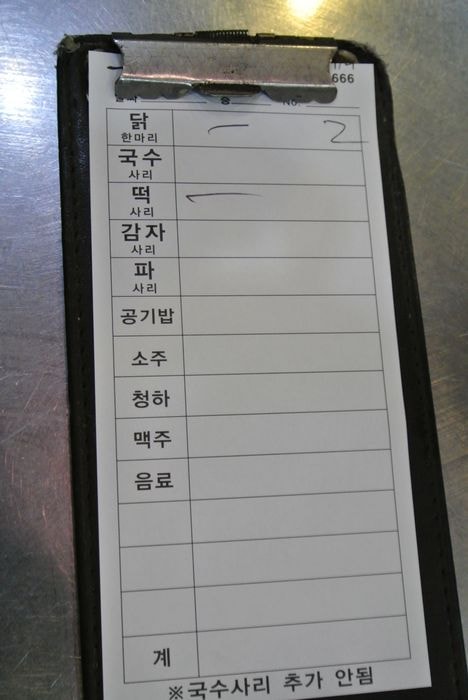 666
No.
닭 2
한마리
국수
사리
떡
사리
감자
사리
파
사리
공기밥
소주
청하
맥주
음료
계
※국수사리 추가 안됨